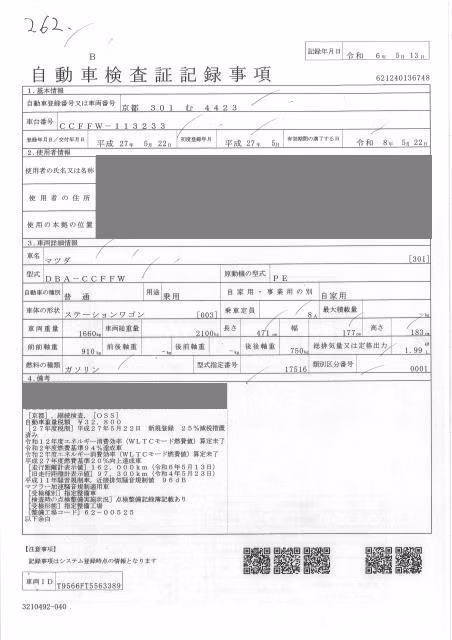 262.
B
記録年月日 令和 6年 5月 13日
自動車検査証記録事項
621240136748
1.基本情報
自動車登録番号又は車両番号 京都 301 む 4423
車台番号 CCFFW-113233
登録年月日/交付年月日 平成 27年 5月 22日 初度登録年月 平成 27年 5月 有効期間の満了する日 令和 8年 5月 22日
2.使用者情報
使用者の氏名又は名称
使用者の住所
使用の本拠の位置
3.車両詳細情報
車名 マツダ [301]
型式 DBA-CCFFW 原動機の型式 PE
自動車の種別 普通 用途 乗用 自家用・事業用の別 自家用
車体の形状 ステーションワゴン [003] 乗車定員 8人 最大積載量 -kg
車両重量 1660kg 車両総重量 2100kg 長さ 471cm 幅 177cm 高さ 183cm
前前軸重 910kg 前後軸重 -kg 後前軸重 -kg 後後軸重 750kg 総排気量又は定格出力 1.99L
燃料の種類 ガソリン 型式指定番号 17516 類別区分番号 0001
4.備考
[京都],継続検査,[OSS]
自動車重量税額 ¥32,800
[27年度税制]平成27年5月22日 新規登録 25%減税措置
済み
令和12年度エネルギー消費効率(WLTCモード燃費値)算定未了
令和2年度燃費基準94%達成車
令和2年度エネルギー消費効率(WLTCモード燃費値)算定未了
平成27年度燃費基準20%向上達成車
[走行距離計表示値]162,000km(令和6年5月13日)
[旧走行距離計表示値]97,300km(令和4年5月23日)
平成11年騒音規制車,近接排気騒音規制値 96dB
マフラー加速騒音規制適用車
[受検種別]指定整備車
[検査時の点検整備実施状況]点検整備記録簿記載あり
[受検形態]指定整備工場
[整備工場コード]62-00525
以下余白
【注意事項】
記録事項はシステム登録時点の情報となります
車両ID T9566FT5563389
3210492-040